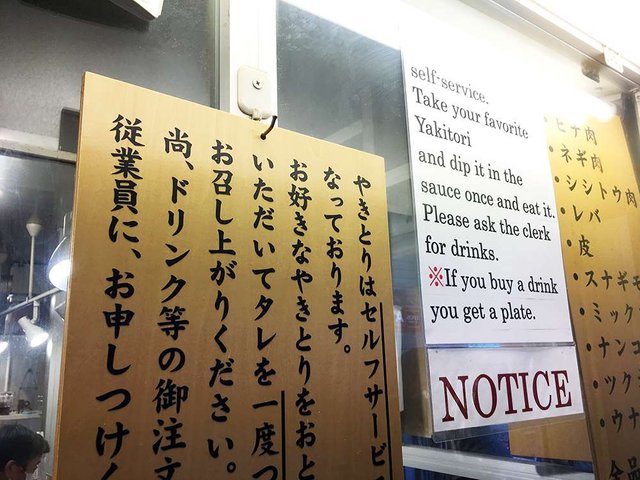 やきとりはセルフサービス
なっております。
お好きなやきとりをおと
いただいてタレを一度つ
お召し上がりください。
尚、ドリンク等の御注文
従業員に、お申しつけく
self-service.
Take your favorite
Yakitori
and dip it in the
sauce once and eat it.
Please ask the clerk
for drinks.
※If you buy a drink
you get a plate.
NOTICE
・ヒナ肉
・ネギ肉
・シシトウ肉
・レバ
・皮
・スナギモ
・ミック
・ナンコ
・ツク
・ウナ